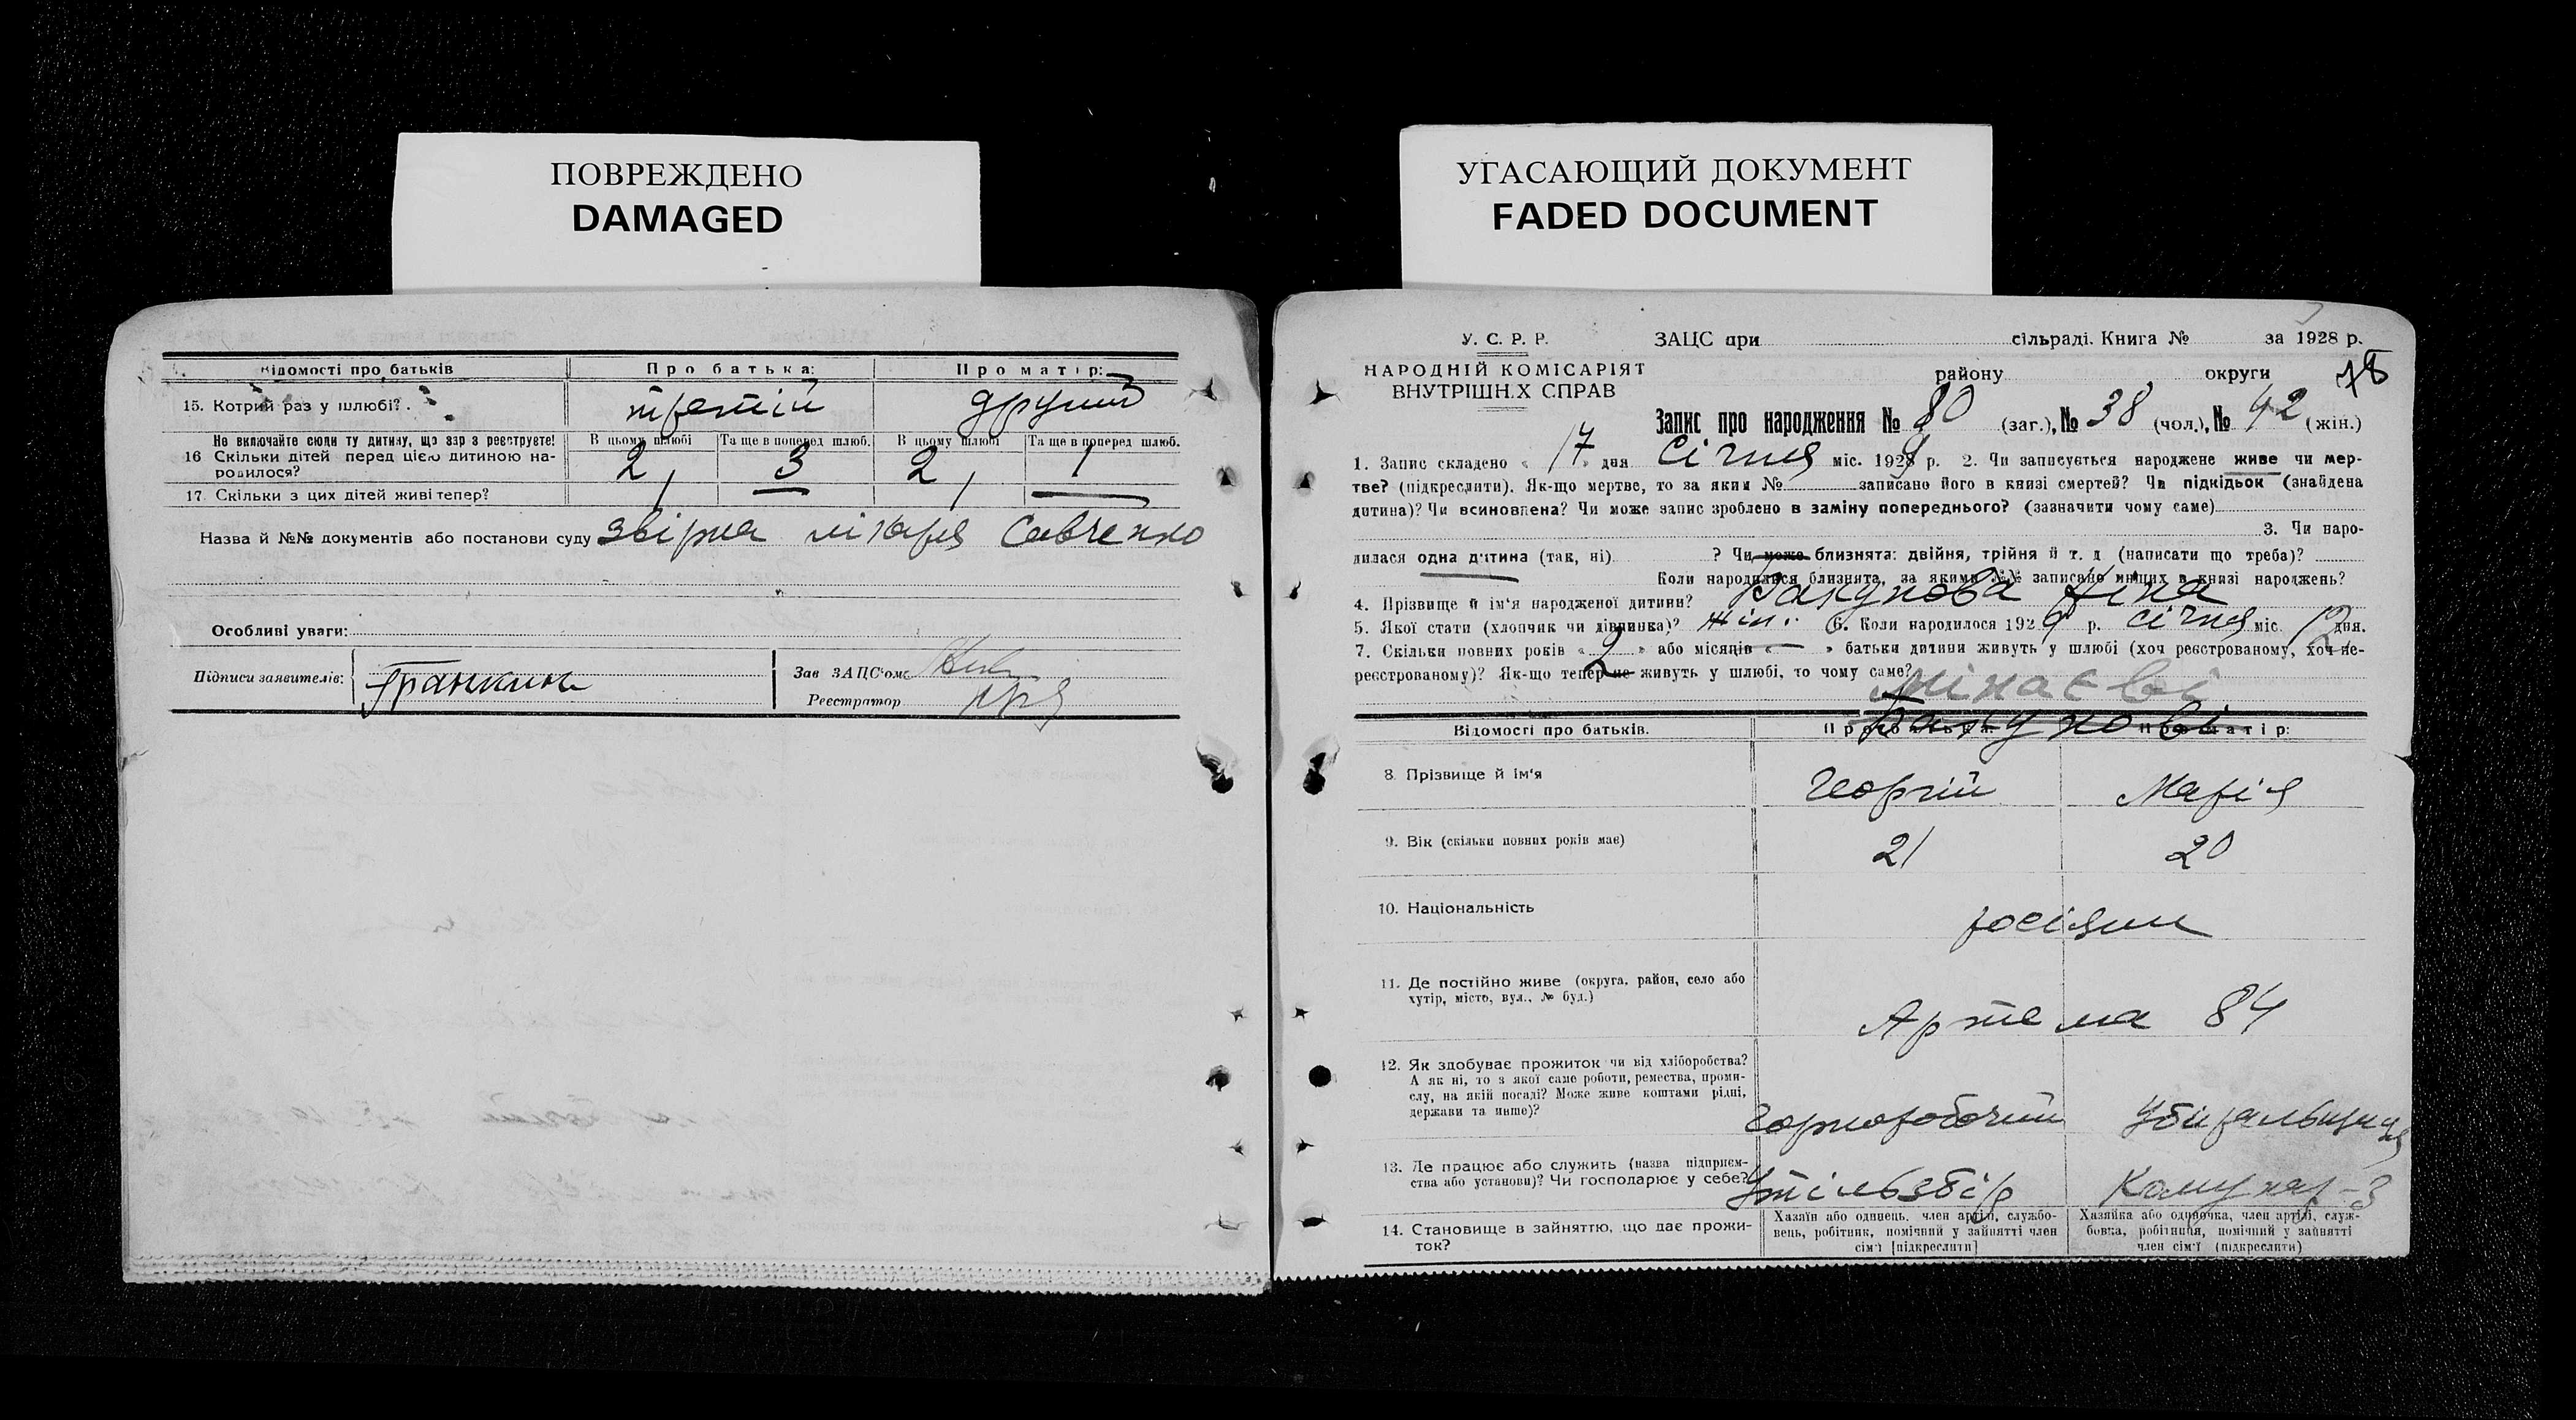 ПОВРЕЖДЕНО
DAMAGED
Відомості про батьків
Про батька:
Про матір:
15. Котрий раз у шлюбі?
третій
другий
Не включайте сюди ту дитину, що зар з реєструєте!
16 Скільки дітей перед цією дитиною на-
родилося?
В цьому шлюбі
Та ще в поперед шлюб.
В цьому шлюбі
Та ще в поперед шлюб.
2
3
2
1
17. Скільки з цих дітей живі тепер?
1
—
1
—
Назва й №№ документів або постанови суду звірка лікаря Савченко
Особливі уваги:
Підписи заявителів:
Гранкин
Зав ЗАЦС'ом
Реєстратор
УГАСАЮЩИЙ ДОКУМЕНТ
FADED DOCUMENT
У. С. Р. Р.
НАРОДНІЙ КОМІСАРІЯТ
ВНУТРІШН.Х СПРАВ
ЗАЦС при сільраді. Книга № за 1928 р.
району округи 78
Запис про народження № 80 (заг.), № 38 (чол.), № 42 (жін.)
1. Запис складено « 17 » дня Січня міс. 1929 р. 2. Чи записується народжене живе чи мер-
тве? (підкреслити). Як-що мертве, то за яким № записано його в книзі смертей? Чи підкідьок (знайдена
дитина)? Чи всиновлена? Чи може запис зроблено в заміну попереднього? (зазначити чому саме)
3. Чи наро-
дилася одна дитина (так, ні) ? Чи може близнята: двійня, трійня й т. д (написати що треба)?
Коли народилися близнята, за якими №№ записано инших в книзі народжень?
4. Прізвище й ім'я народженої дитини? Бакунова Ніна
5. Якої стати (хлопчик чи дівчинка)? жін. 6. Коли народилося 1929 р. січня міс. 12 дня.
7. Скільки повних років « 2 » або місяців « — » батьки дитини живуть у шлюбі (хоч реєстрованому, хоч не-
реєстрованому)? Як-що тепер не живуть у шлюбі, то чому саме?
Мінаєві
Бакунові
Відомості про батьків.
Про батька:
Про матір:
8. Прізвище й ім'я
Георгій
Марія
9. Вік (скільки повних років має)
21
20
10. Національність
росіяни
11. Де постійно живе (округа, район, село або
хутір, місто, вул., № буд.)
Артема 84
12. Як здобуває прожиток чи від хліборобства?
А як ні, то з якої саме роботи, ремества, проми-
слу, на якій посаді? Може живе коштами рідні,
держави та инше)?
Чорноробочий
Убіральщиця
13. Де працює або служить (назва підприєм-
ства або установи)? Чи господарює у себе?
Утільзбір
Комунар-3
14. Становище в зайняттю, що дає прожи-
ток?
Хазяїн або одинець, член артілі, службо-
вець, робітник, помічний у зайнятті член
сім'ї [підкреслити]
Хазяйка або одиночка, член артілі, служ-
бовка, робітниця, помічний у зайнятті
член сім'ї (підкреслити)